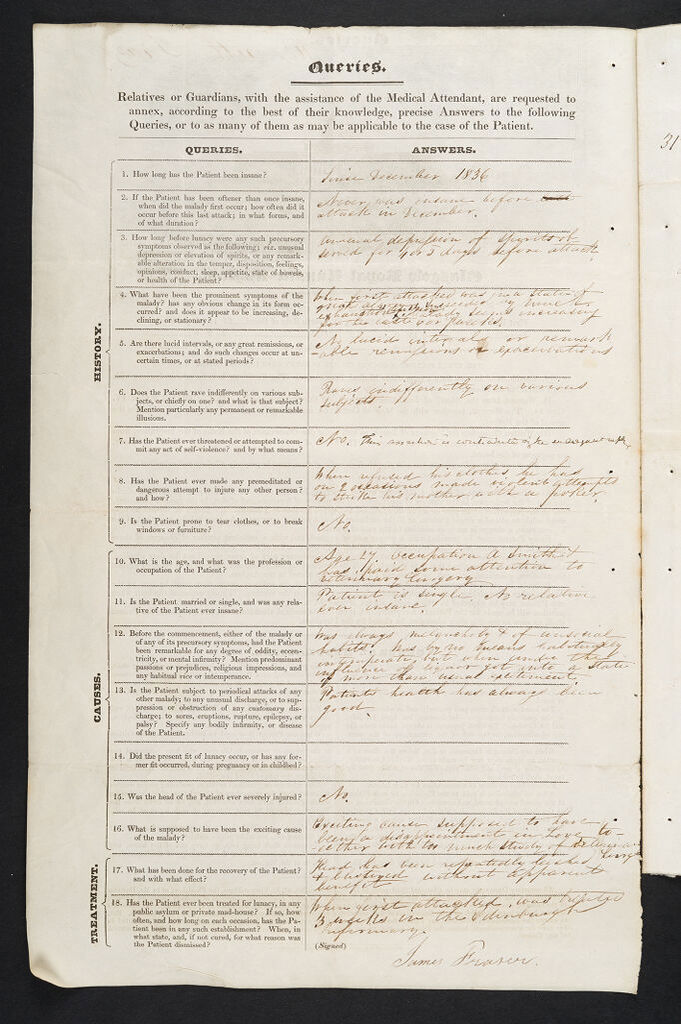 Queries.
Relatives or Guardians, with the assistance of the Medical Attendant, are requested to
annex, according to the best of their knowledge, precise Answers to the following
Queries, or to as many of them as may be applicable to the case of the Patient.
QUERIES.
ANSWERS.
HISTORY.
1. How long has the Patient been insane?
Since December 1836
2. If the Patient has been oftener than once insane,
when did the malady first occur; how often did it
occur before this last attack; in what forms, and
of what duration?
Never was insane before
attack in December.
3. How long before lunacy were any such precursory
symptoms observed as the following; viz. unusual
depression or elevation of spirits, or any remark-
able alteration in the temper, disposition, feelings,
opinions, conduct, sleep, appetite, state of bowels,
or health of the Patient?
Unusual depression of spirits ob-
served for 4 or 5 days before attack
4. What have been the prominent symptoms of the
malady? has any obvious change in its form oc-
curred? and does it appear to be increasing, de-
clining, or stationary?
When first attacked was in a state of
great
for the last
5. Are there lucid intervals, or any great remissions, or
exacerbations; and do such changes occur at un-
certain times, or at stated periods?
No lucid intervals or remark
-able remissions or exacerbations
6. Does the Patient rave indifferently on various sub-
jects, or chiefly on one? and what is that subject?
Mention particularly any permanent or remarkable
illusions.
Raves indifferently on various
subjects.
7. Has the Patient ever threatened or attempted to com-
mit any act of self-violence? and by what means?
No. This answer is
8. Has the Patient ever made any premeditated or
dangerous attempt to injure any other person?
and how?
When refused his clothes he has
on 2 occasions made violent attempts
to strike his mother with a poker.
9. Is the Patient prone to tear clothes, or to break
windows or furniture?
No.
CAUSES.
10. What is the age, and what was the profession or
occupation of the Patient?
Age 27, occupation a Smith &
has paid some attention to
veterinary surgery
11. Is the Patient married or single, and was any rela-
tive of the Patient ever insane?
Patient is single, No relative
ever insane.
12. Before the commencement, either of the malady or
of any of its precursory symptoms, had the Patient
been remarkable for any degree of oddity, eccen-
tricity, or mental infirmity? Mention predominant
passions or prejudices, religious impressions, and
any habitual vice or intemperance.
Was always melancholy & of unsocial
habits. Was by no means habitually
intemperate, but when under the
influence of liquor got into a state
of more than usual excitement.
13. Is the Patient subject to periodical attacks of any
other malady; to any unusual discharge, or to sup-
pression or obstruction of any customary dis-
charge; to sores, eruptions, rupture, epilepsy, or
palsy? Specify any bodily infirmity, or disease
of the Patient.
Patients health has always been
good.
14. Did the present fit of lunacy occur, or has any for-
mer fit occurred, during pregnancy or in childbed?
15. Was the head of the Patient ever severely injured?
No.
16. What is supposed to have been the exciting cause
of the malady?
Exciting cause supposed to have
been a disappointment in love to-
-gether with too much study of
TREATMENT.
17. What has been done for the recovery of the Patient?
and with what effect?
Head has been repeatedly
& blistered without apparent
benefit
18. Has the Patient ever been treated for lunacy, in any
public asylum or private mad-house? If so, how
often, and how long on each occasion, has the Pa-
tient been in any such establishment? When, in
what state, and, if not cured, for what reason was
the Patient dismissed?
When first attacked, was treated
3 weeks in the Edinburgh
Infirmary.
(Signed)
James Fraser.
31